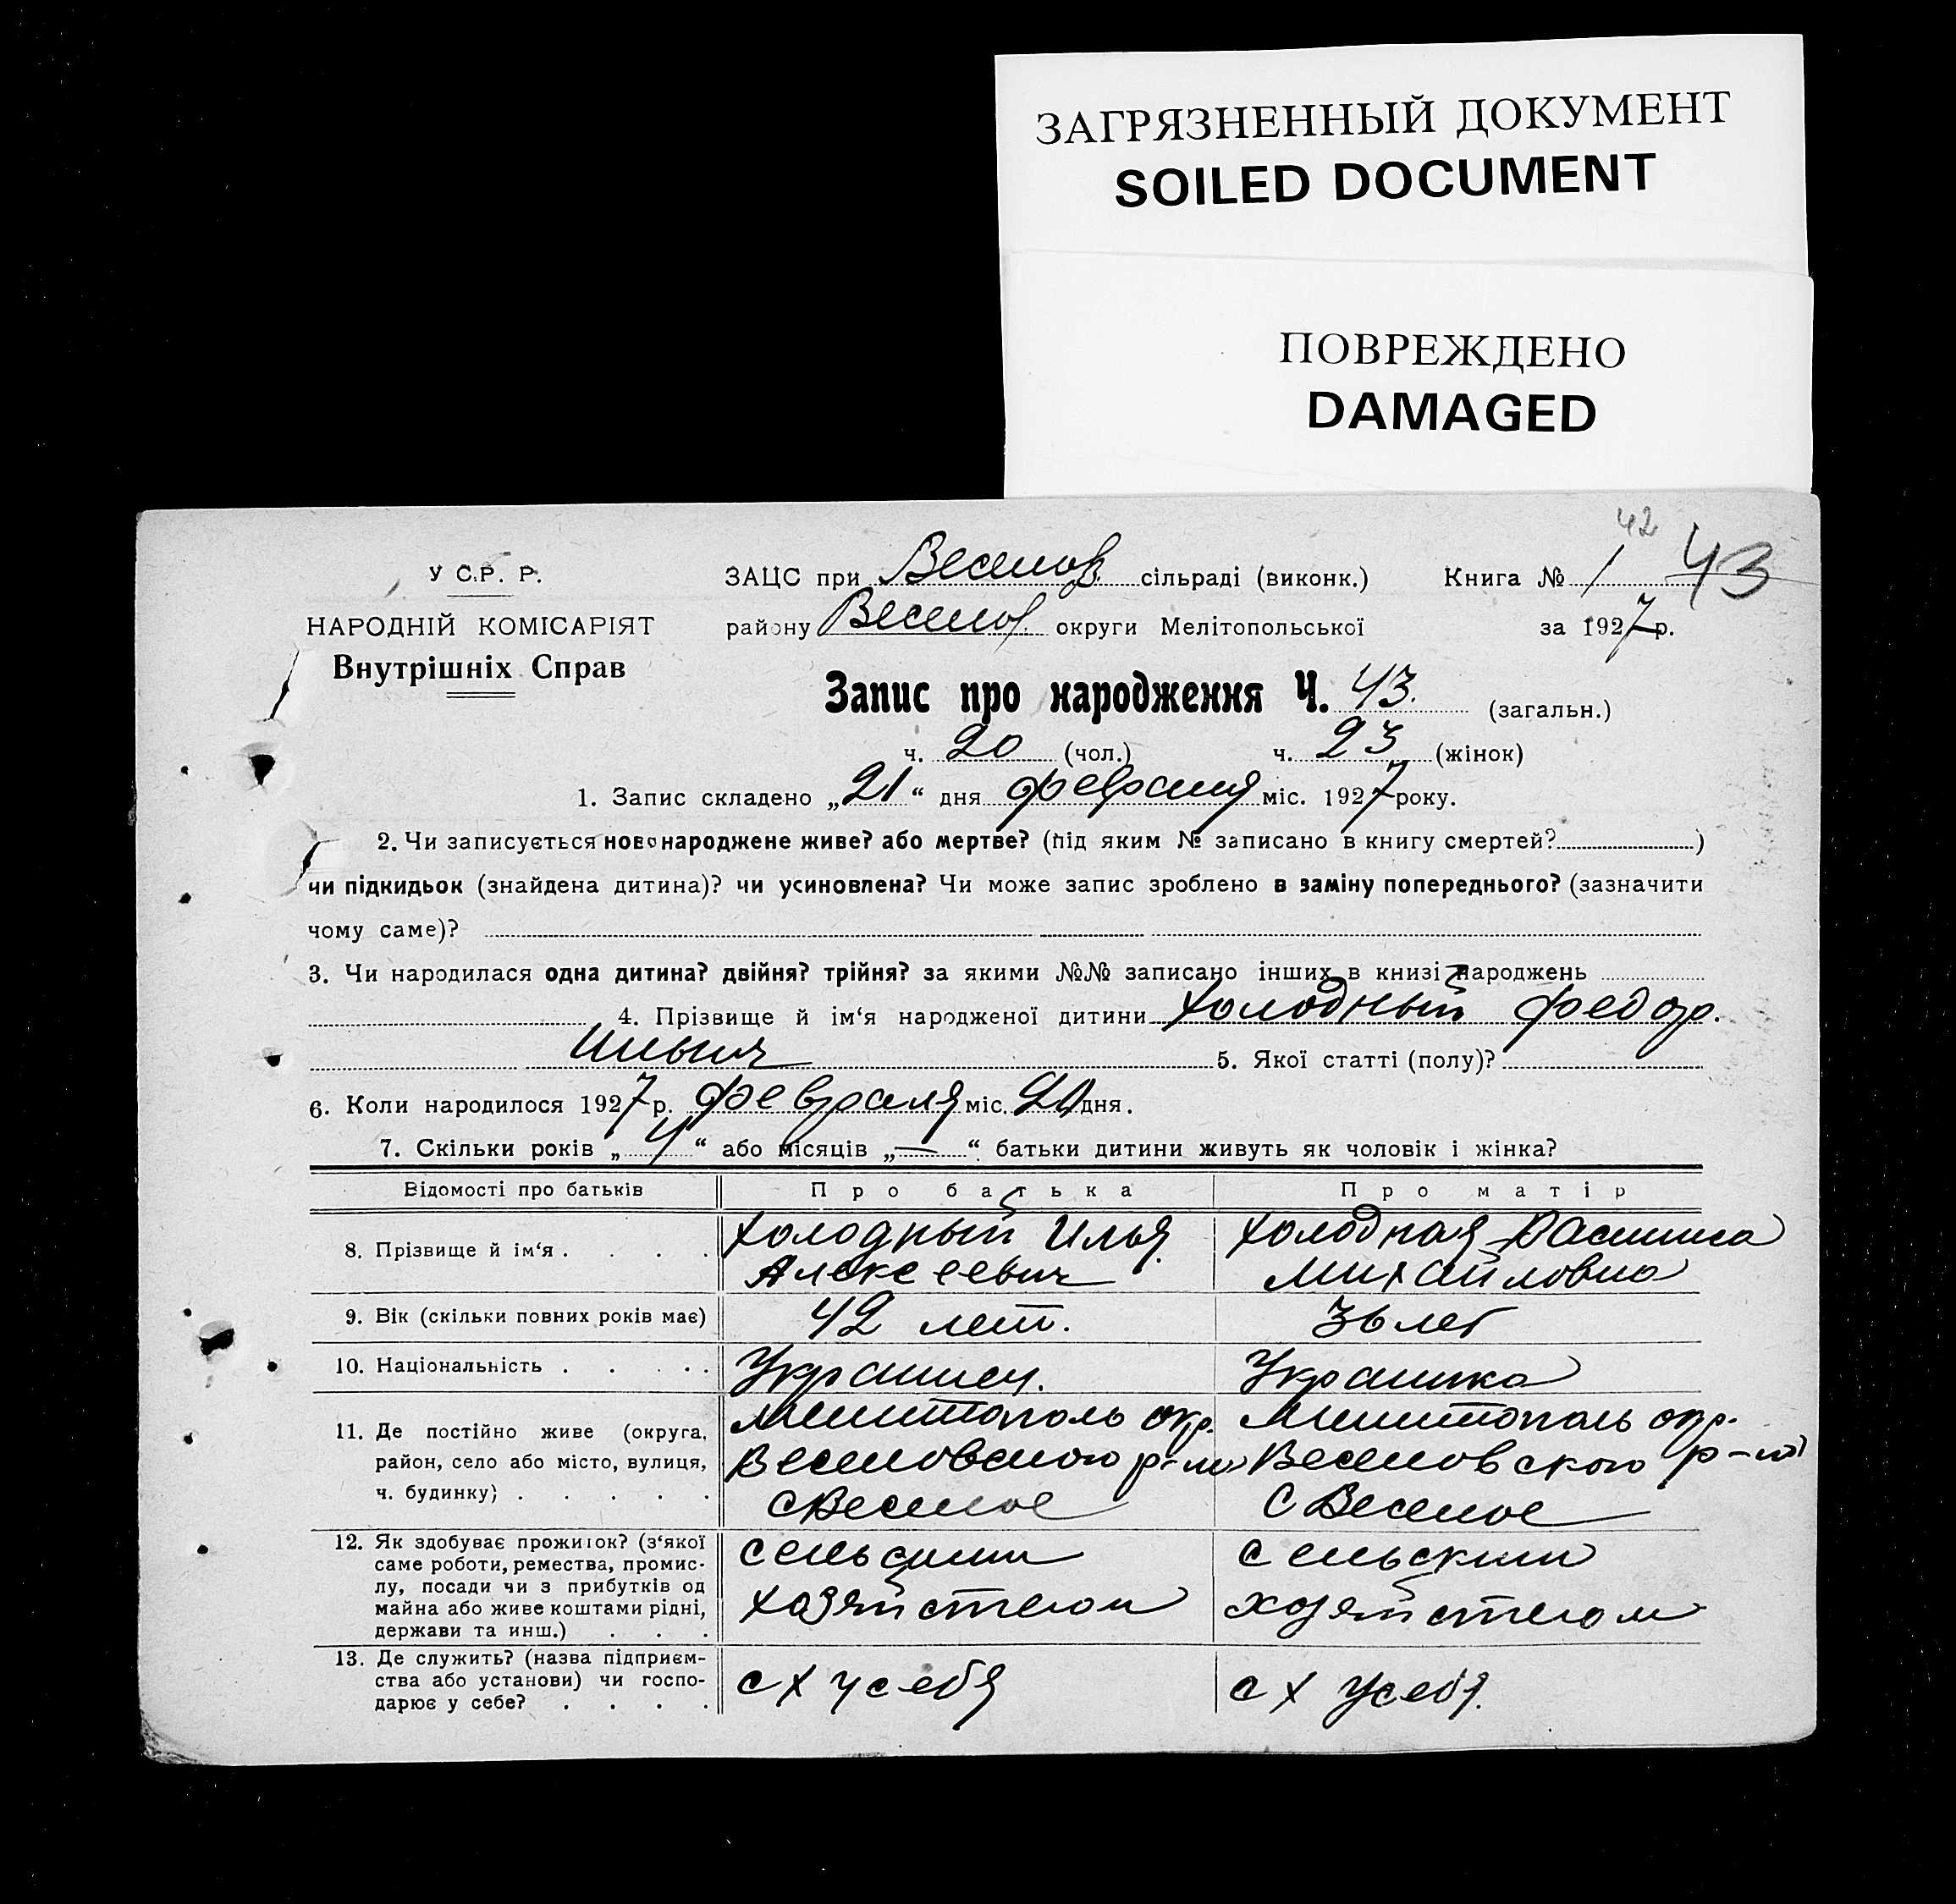 ЗАГРЯЗНЕННЫЙ ДОКУМЕНТ
SOILED DOCUMENT
ПОВРЕЖДЕНО
DAMAGED
42
У С.Р. Р.
ЗАЦС при Веселов. сільраді (виконк.) Книга № 1 43
НАРОДНІЙ КОМІСАРІЯТ
району Веселов. округи Мелітопольської за 1927 р.
Внутрішніх Справ
Запис про народження Ч. 43. (загальн.)
ч. 20 (чол.) ч. 23 (жінок)
1. Запис складено „21“ дня февраля міс. 1927 року.
2. Чи записується новонароджене живе? або мертве? (під яким № записано в книгу смертей?)
чи підкидьок (знайдена дитина)? чи усиновлена? Чи може запис зроблено в заміну попереднього? (зазначити
чому саме)?
3. Чи народилася одна дитина? двійня? трійня? за якими №№ записано інших в книзі народжень
4. Прізвище й ім‘я народженої дитини Холодный Федор.
Ильич 5. Якої статті (полу)?
6. Коли народилося 1927 р. февраля міс. дня.
7. Скільки років „ “ або місяців „—“ батьки дитини живуть як чоловік і жінка?
Відомості про батьків Про батька Про матір
8. Прізвище й ім‘я . . . . . Холодный Илья Холодная
Алексеевич Михайловна
9. Вік (скільки повних років має) 42 лет. 36 лет
10. Національність . . . . . Украинец. Украинка
11. Де постійно живе (округа, Мелитополь окр. Мелитополь окр.
район, село або місто, вулиця, Веселовского р-на Веселовского р-на
ч. будинку) . . . . . с Веселое с Веселое
12. Як здобуває прожиток? (з‘якої сельским сельским
саме роботи, ремества, промис-
лу, посади чи з прибутків од
майна або живе коштами рідні, хозяйством хозяйством
держави та инш.) . . .
13. Де служить? (назва підприєм-
ства або установи) чи госпо- с х у себя с х у себя.
дарює у себе? . . . .